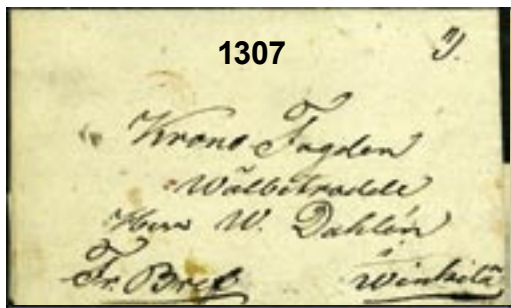 1307
Krono Fogden
Wälbetrodde
Herr W. Dahlén
i
Fr. Bref